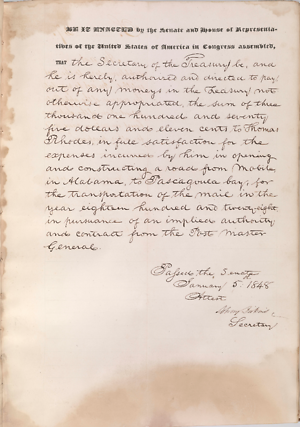 BE IT ENACTED by the Senate and House of Representa-
tives of the United States of America in Congress assembled,
THAT the Secretary of the Treasury be, and
he is hereby, authorized and directed to pay,
out of any moneys in the Treasury not
otherwise appropriated, the sum of three
thousand one hundred and seventy
five dollars and eleven cents to Thomas
Rhodes, in full satisfaction for the
expenses incurred by him in opening
and constructing a road from Mobile,
in Alabama, to Pascagoula bay, for
the transportation of the mail, in the
year eighteen hundred and twenty eight,
in pursuance of an implied authority
and contract from the Post Master
General.
Passed the Senate
January 5. 1848
Attest
Secretary